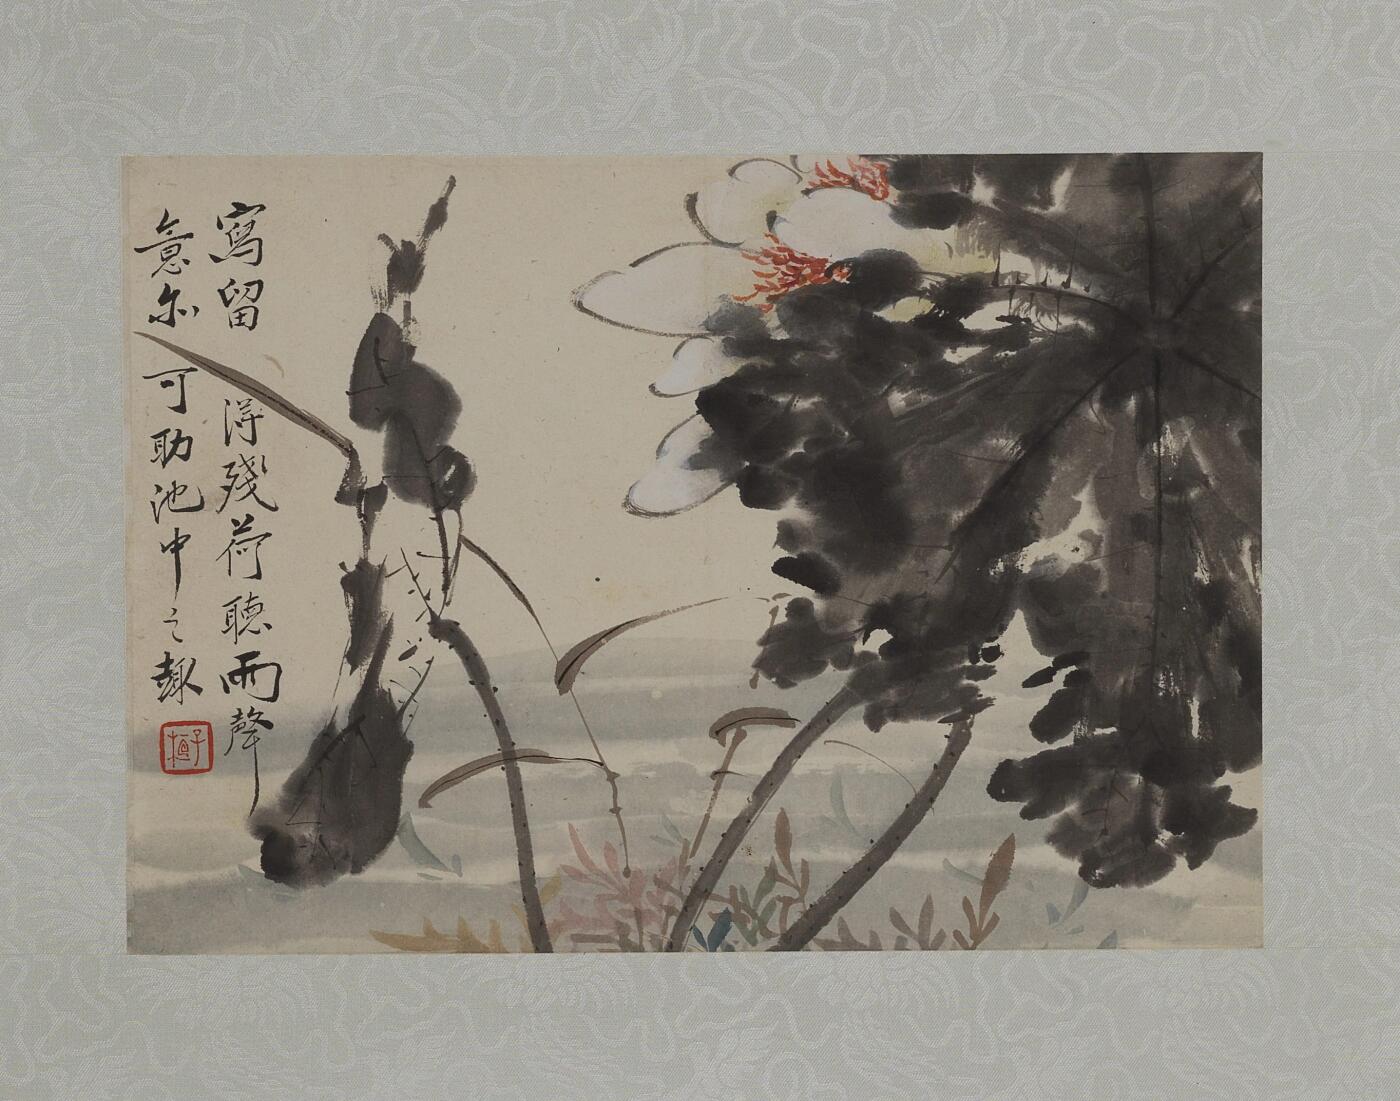 寫留得殘荷聽雨聲
意尒可助池中之趣
子恒